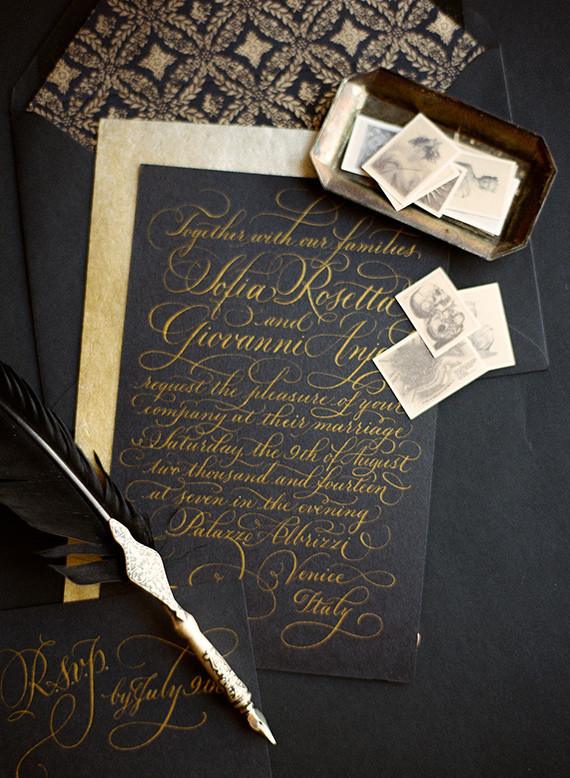 Together with our families
Sofia Rosetta
and
Giovanni
request the pleasure of your
company at their marriage
Saturday the 9th of August
two thousand and fourteen
at seven in the evening
Palazzo Albrizzi
Venice
Italy
R.s.v.p.
by July 9th